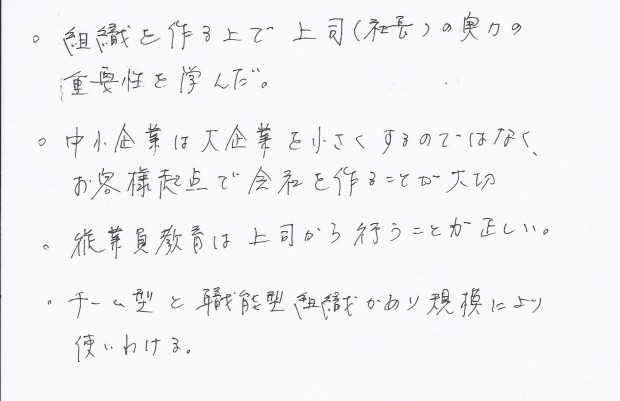 。組織を作る上で上司(社長)の実力の
重要性を学んだ。
。中小企業は大企業を小さくするのではなく、
お客様起点で会社を作ることが大切
。従業員教育は上司から行うことが正しい。
・チーム型と職能型組織があり規模により
使いわける。